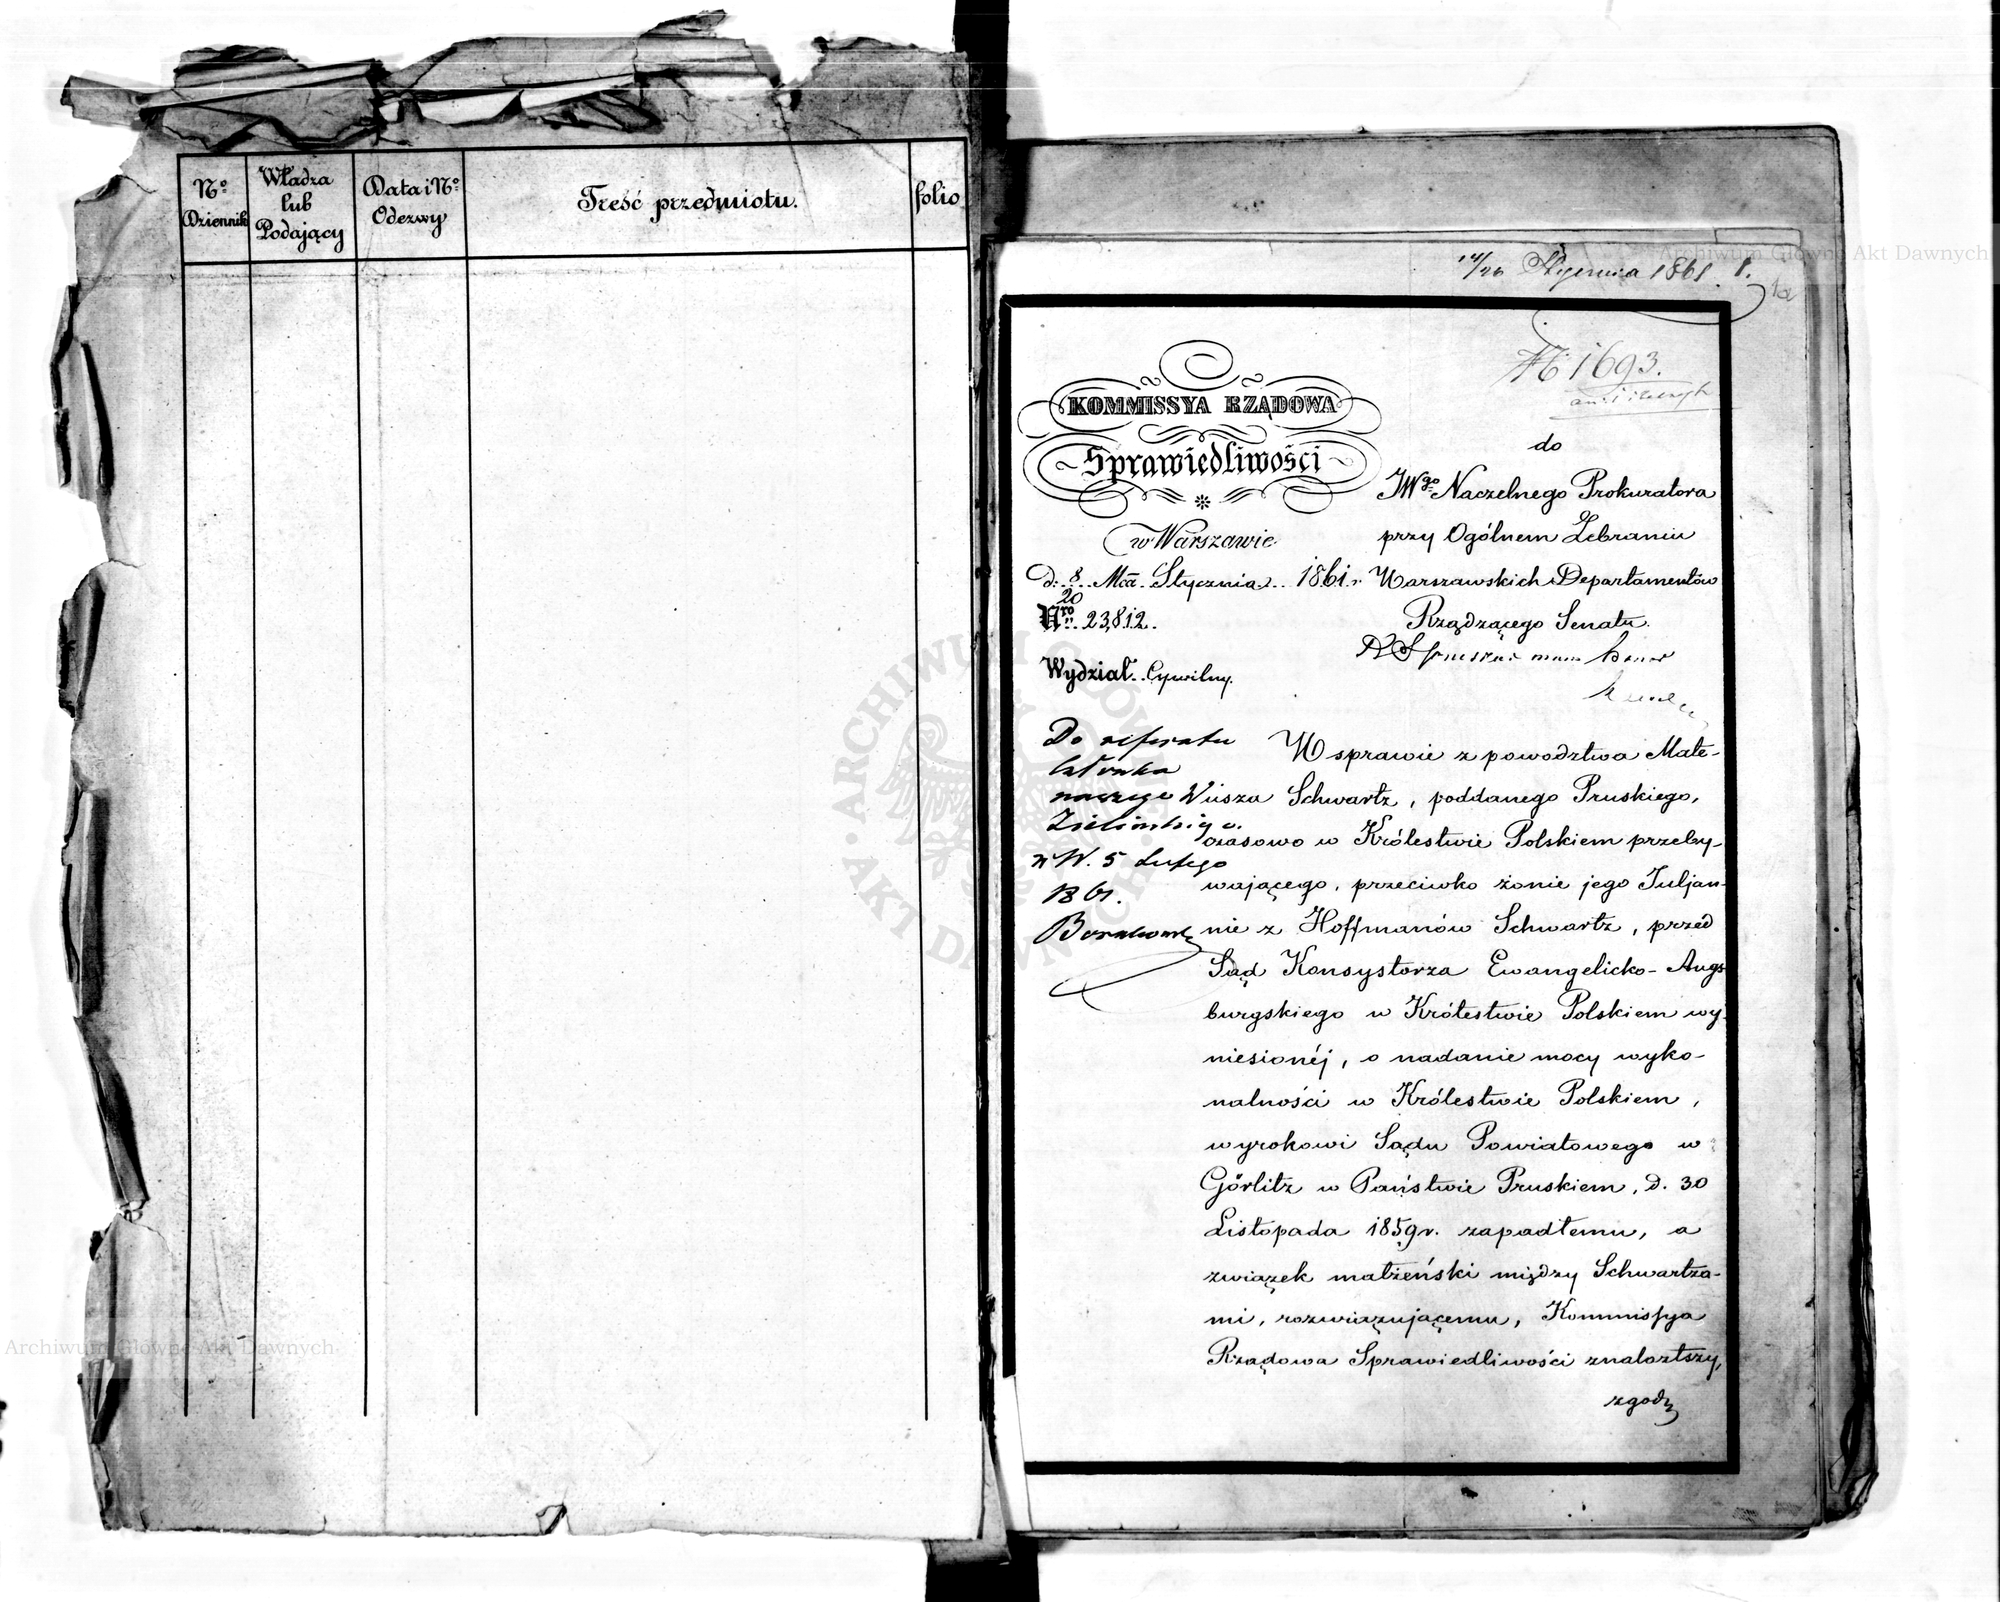 No
Dziennik
Władza
lub
Podający
Data i No
Odezwy
Treść przedmiotu.
folio
14/26 Stycznia 1861. 1.
№ 1693.
KOMMISSYA RZĄDOWA
Sprawiedliwości
w Warszawie
d. 8/20 Mca Stycznia 1861 r.
Nro 23812.
Wydział Cywilny.
do
JWgo Naczelnego Prokuratora
przy Ogólnem Zebraniu
Warszawskich Departamentów
Rządzącego Senatu.
Do referatu
członka
naszego
Zielińskiego.
W. 5 Lutego
1861.
W sprawie z powództwa Mate-
usza Schwartz, poddanego Pruskiego,
czasowo w Królestwie Polskiem przeby-
wającego, przeciwko żonie jego Juljan-
nie z Hoffmanów Schwartz, przed
Sąd Konsystorza Ewangelicko-Augs-
burgskiego w Królestwie Polskiem wy-
niesionéj, o nadanie mocy wyko-
nalności w Królestwie Polskiem,
wyrokowi Sądu Powiatowego w
Görlitz w Państwie Pruskiem, d. 30
Listopada 1859 r. zapadłemu, a
związek małżeński między Schwartza-
mi, rozwiązującemu, Kommissya
Rządowa Sprawiedliwości znalazłszy,
zgody
Archiwum Główne Akt Dawnych
Archiwum Główne Akt Dawnych
ARCHIWUM GŁÓWNE AKT DAWNYCH